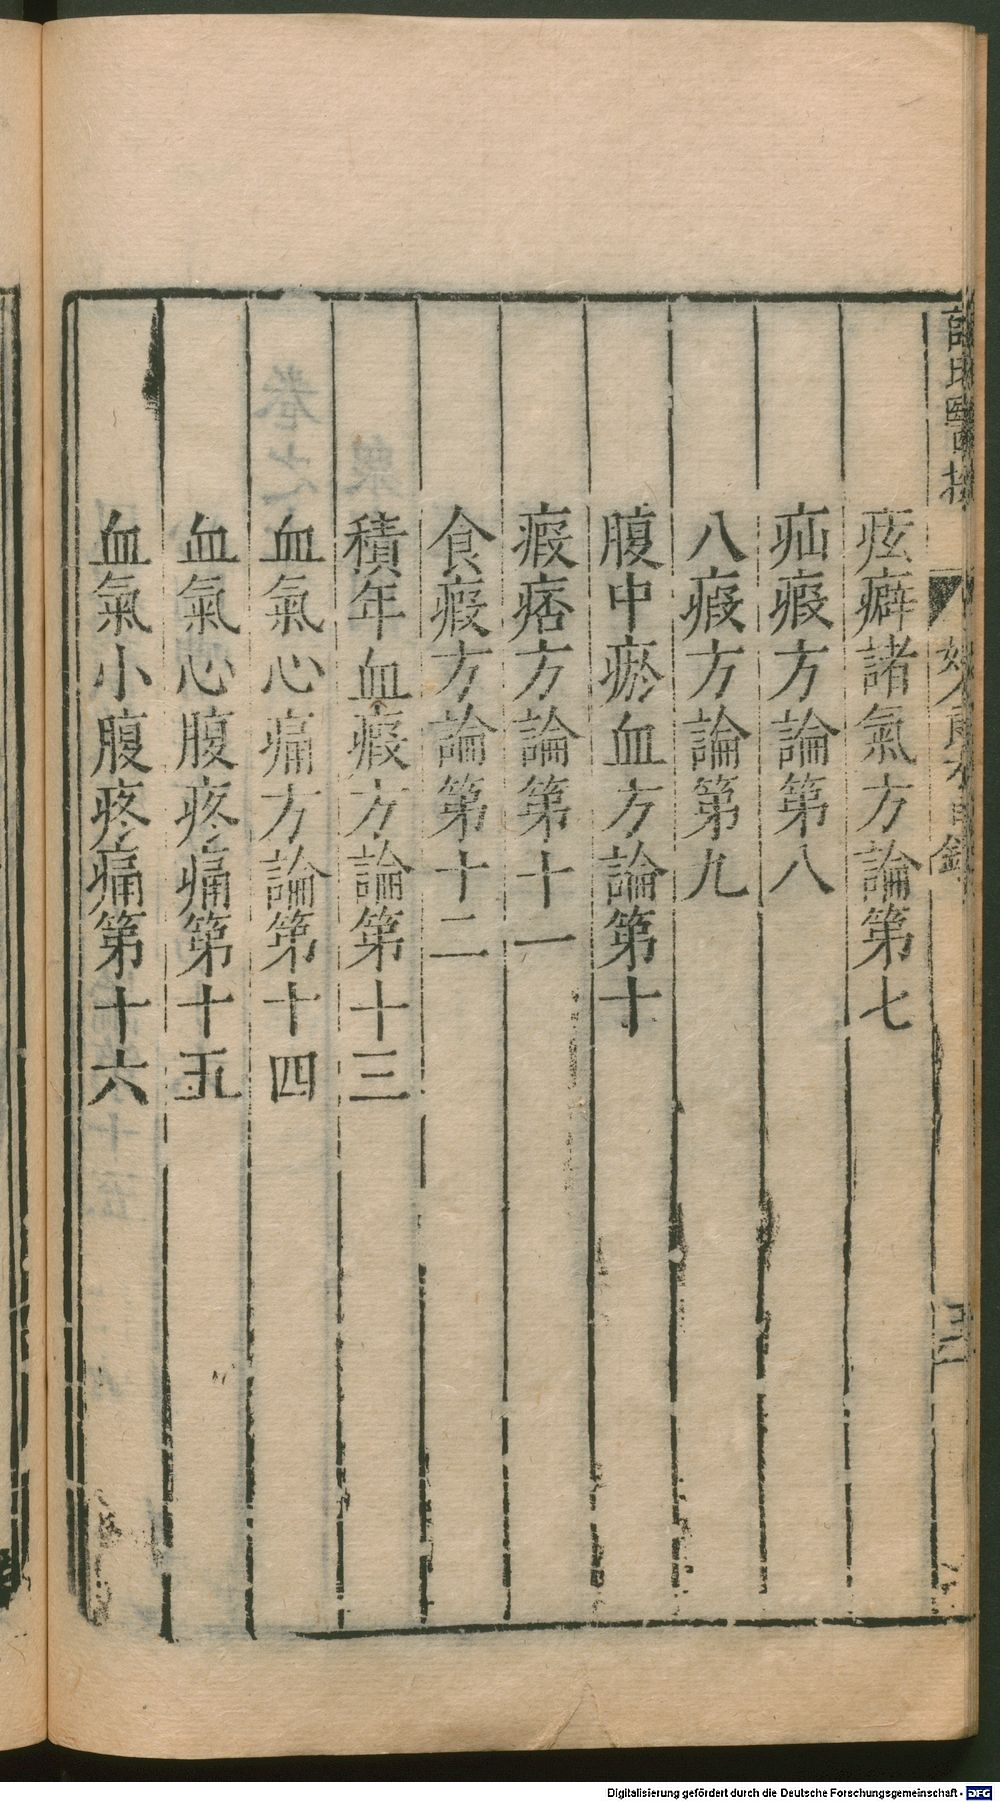 痃癖諸氣方論第七
疝瘕方論第八
八瘕方論第九
腹中瘀血方論第十
瘕痞方論第十一
食瘕方論第十二
積年血瘕方論第十三
血氣心痛方論第十四
血氣心腹疼痛第十五
血氣小腹疼痛第十六
Digitalisierung gefördert durch die Deutsche Forschungsgemeinschaft - DFG